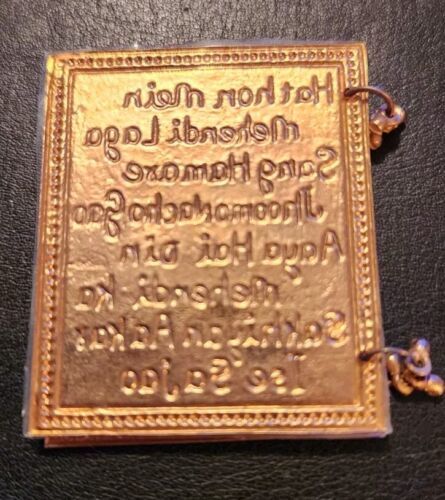 Hathon Mein
Mehendi Laga
Sang Hamare
Jhoomo Nacho Gao
Aaya Hai Din
Mehendi Ka
Sakhiyan Aakar
Ise Sajao